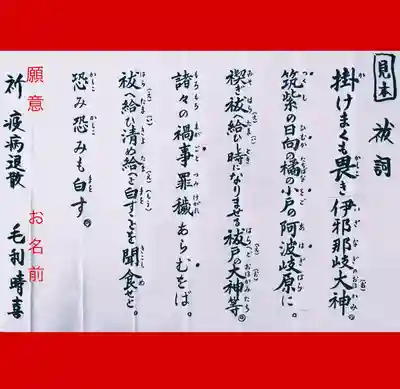 見本
祓詞
掛けまくも畏き伊邪那岐大神。
筑紫の日向の橘の小戸の阿波岐原に。
禊ぎ祓へ給ひし時になりませる祓戸の大神等。
諸々の禍事罪穢あらむをば。
祓へ給ひ清め給へと白すことを聞食せと。
恐み恐みも白す。
願意
お名前
祈 疫病退散
毛利晴喜